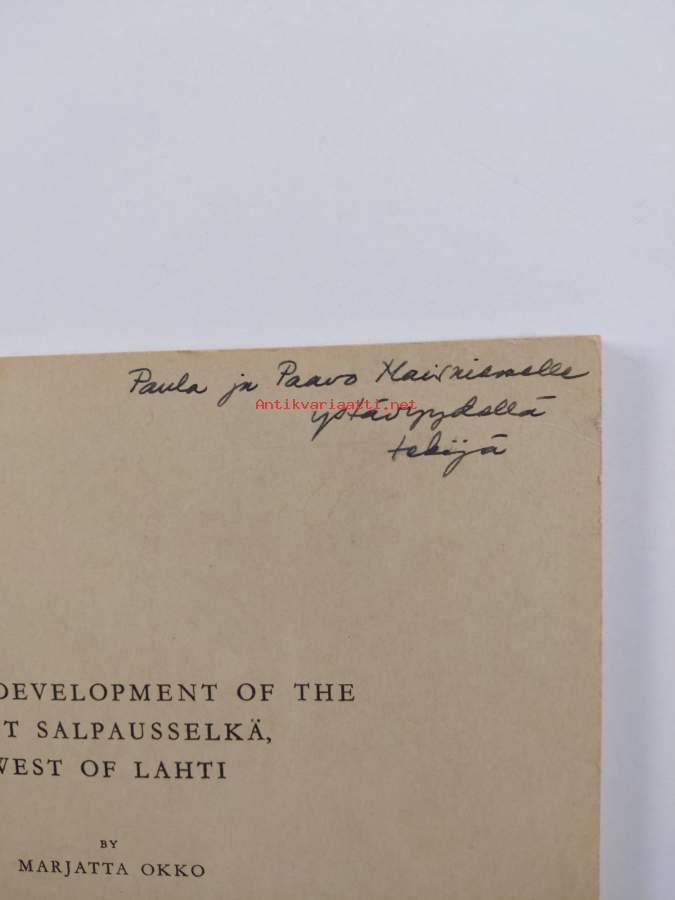 Paula ja Paavo
ystävyydellä
Antikvariaatti.net
tekijä
DEVELOPMENT OF THE
T SALPAUSSELKÄ,
WEST OF LAHTI
BY
MARJATTA OKKO